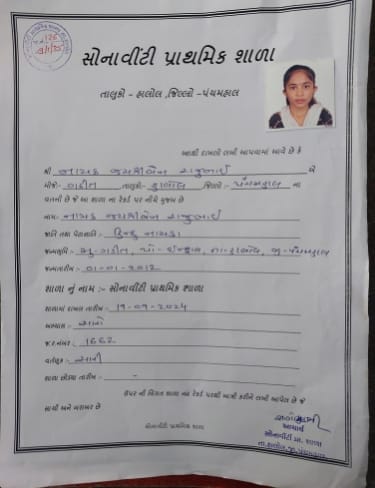 સોનાવીંટી પ્રાથમિક શાળા
તાલુકો - હાલોલ ,જિલ્લો -પંચમહાલ
આથી દાખલો લખી આપવામાં આવે છે કે
શ્રી નાયક જયશ્રીબેન રાજુભાઈ
મોજે:- તાલુકો:- હાલોલ જિલ્લો:- પંચમહાલ ના
વતની છે જે આ શાળા ના રેકર્ડ પર નીચે મુજબ છે
નામ:- નાયક જયશ્રીબેન રાજુભાઈ
જાતિ તથા પેટાજાતિ:- હિન્દુ નાયકડા
જન્મભૂમિ:- મુ. તા-હાલોલ, જી-પંચમહાલ
જન્મતારીખ:- 01-01-2012
શાળા નું નામ :- સોનાવીંટી પ્રાથમિક શાળા
શાળામાં દાખલ તારીખ:- 19-09-2024
અભ્યાસ:- સારો
જ.ર.નંબર:- 1662
વર્તણૂક:- સારી
શાળા છોડ્યા તારીખ:- -
ઉપર ની વિગત શાળા ના રેકર્ડ પરથી ખાત્રી કરીને લખી આપેલ છે જે
સાચી અને બરાબર છે
આચાર્ય
સોનાવીંટી પ્રા. શાળા
સોનાવીંટી પ્રાથમિક શાળા
તા.હાલોલ,જી.પંચમહાલ